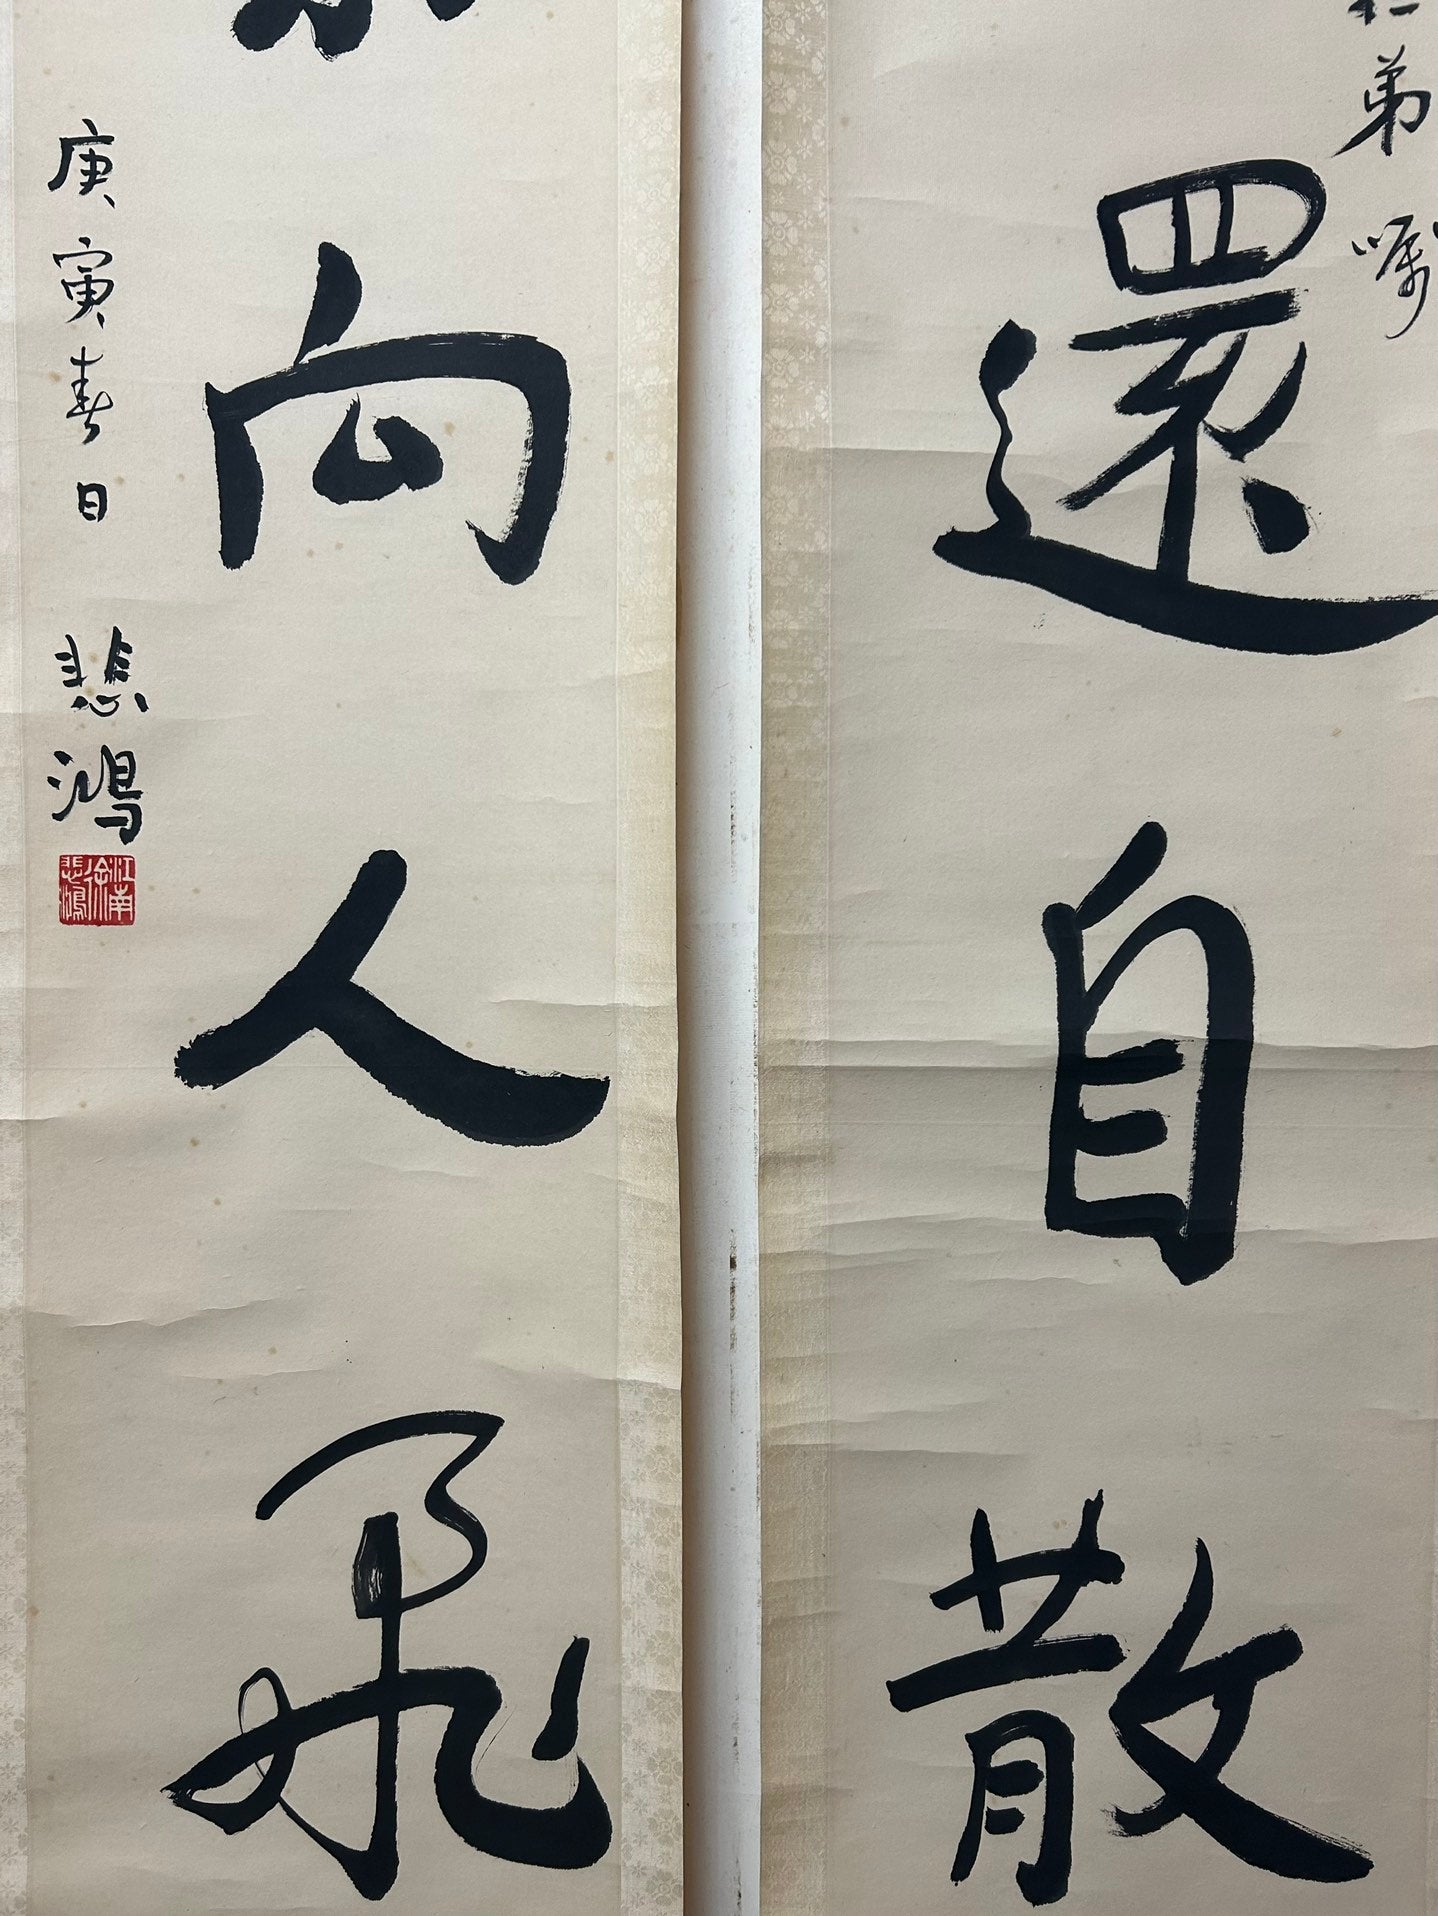 弟嘱
還自散
向人飛
庚寅春日 悲鴻
江南徐悲鴻